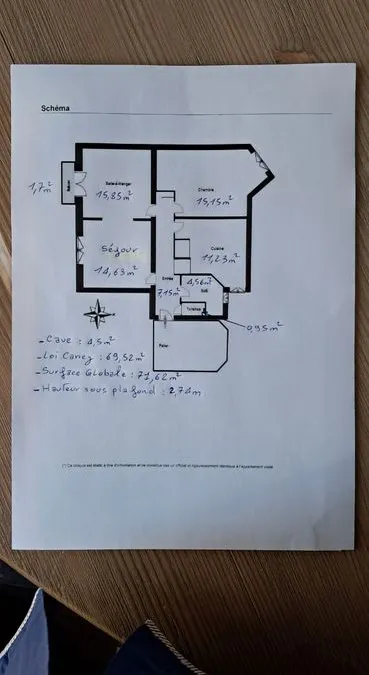 Schéma
1,7m²
Balcon
Salle à Manger
15,85m²
Chambre
15,15m²
Séjour
14,63m²
Cuisine
11,23m²
Entrée
7,15m²
4,56m²
SdB
Toilettes
0,95m²
Palier
- Cave : 4,5m²
- Loi Carrez : 69,52m²
- Surface Globale : 71,62m²
- Hauteur sous plafond : 2,74m